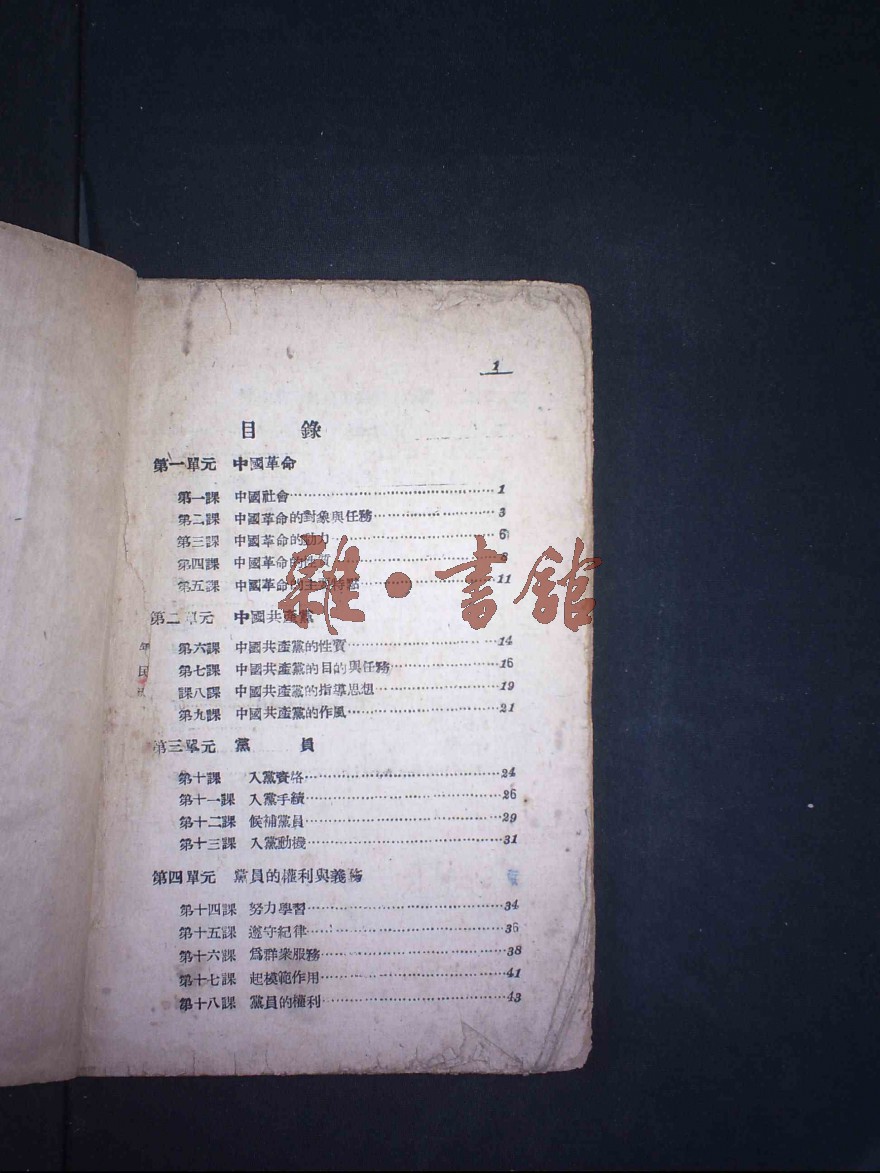 1
目 錄
第一單元 中國革命
第一課 中國社會 1
第二課 中國革命的對象與任務 3
第三課 中國革命的動力 6
第四課 中國革命的性質 8
第五課 中國革命的主要特點 11
第二單元 中國共產黨
第六課 中國共產黨的性質 14
第七課 中國共產黨的目的與任務 16
課八課 中國共產黨的指導思想 19
第九課 中國共產黨的作風 21
第三單元 黨 員
第十課 入黨資格 24
第十一課 入黨手續 26
第十二課 候補黨員 29
第十三課 入黨動機 31
第四單元 黨員的權利與義務
第十四課 努力學習 34
第十五課 遵守紀律 36
第十六課 爲群衆服務 38
第十七課 起模範作用 41
第十八課 黨員的權利 43
雜·書館